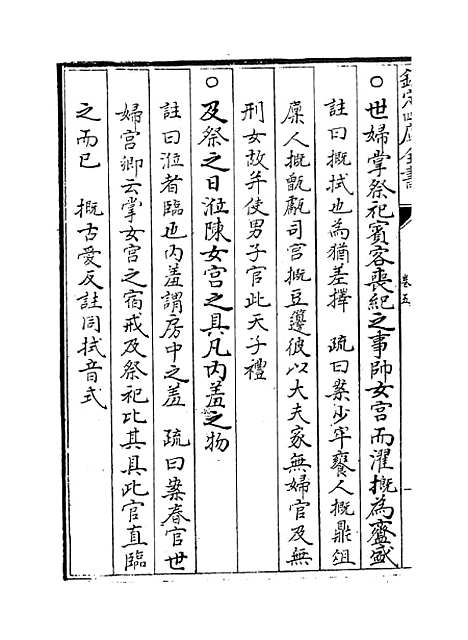 欽定四庫全書
卷五
○世婦掌祭祀賓客喪紀之事帥女宮而濯摡為齍盛
註曰摡拭也為猶差擇　疏曰案少牢饔人摡鼎俎
廩人摡甑甗司宮摡豆籩彼以大夫家無婦官及無
刑女故并使男子官此天子禮
○及祭之日涖陳女宮之具凡內羞之物
註曰涖者臨也內羞謂房中之羞　疏曰案春官世
婦宮卿云掌女宮之宿戒及祭祀比其具此官直臨
之而已　摡古愛反註同拭音式